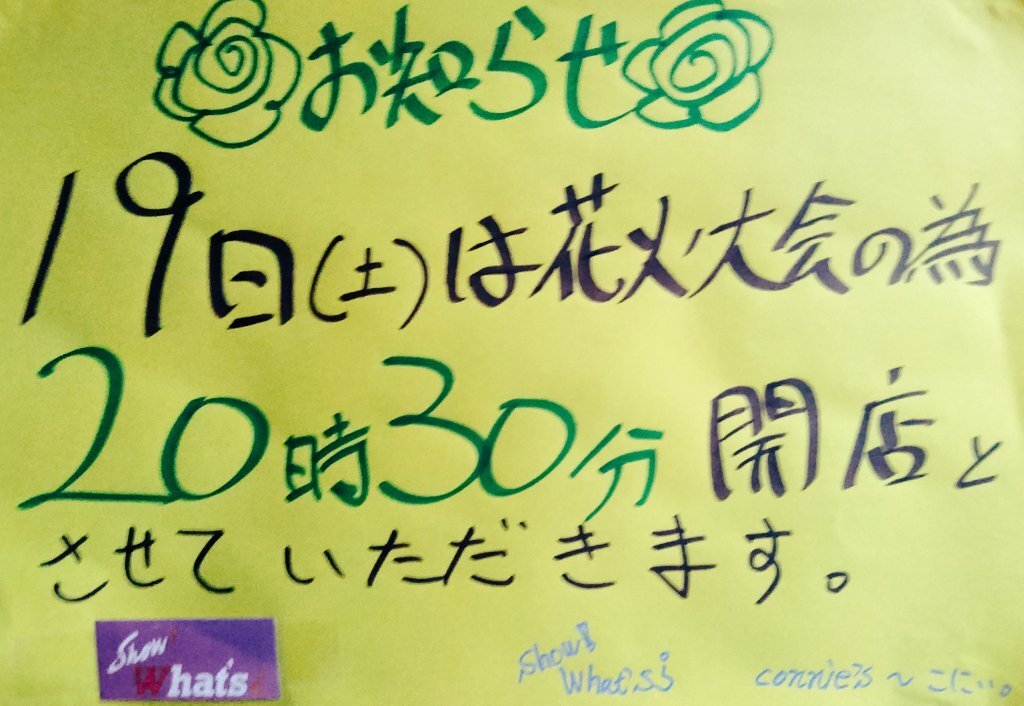 お知らせ
19日(土)は花火大会の為
20時30分開店と
させていただきます。
Show What's
Show! What's!
connie's ~ こにぃ。